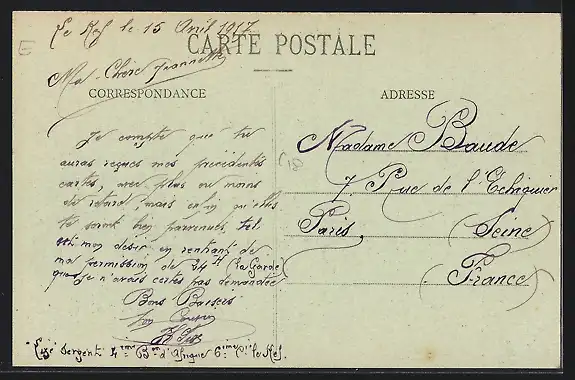 Le Kef le 15 Avril 1917
CARTE POSTALE
Ma Chère Jeannette
CORRESPONDANCE
Je compte que tu
auras reçues mes précédentes
cartes, avec plus ou moins
de retard, mais enfin qu'elles
te soient bien parvenues, tel
est mon désir en rentrant de
ma permission de 24 H (la Garde)
que je n'avais certes pas demandée
Bons Baisers
ADRESSE
Madame Baude
7 Rue de l'Echiquier
Paris (Seine)
(France)
Sergent 4ème Bon d'Afrique 6ème Cie le Kef.